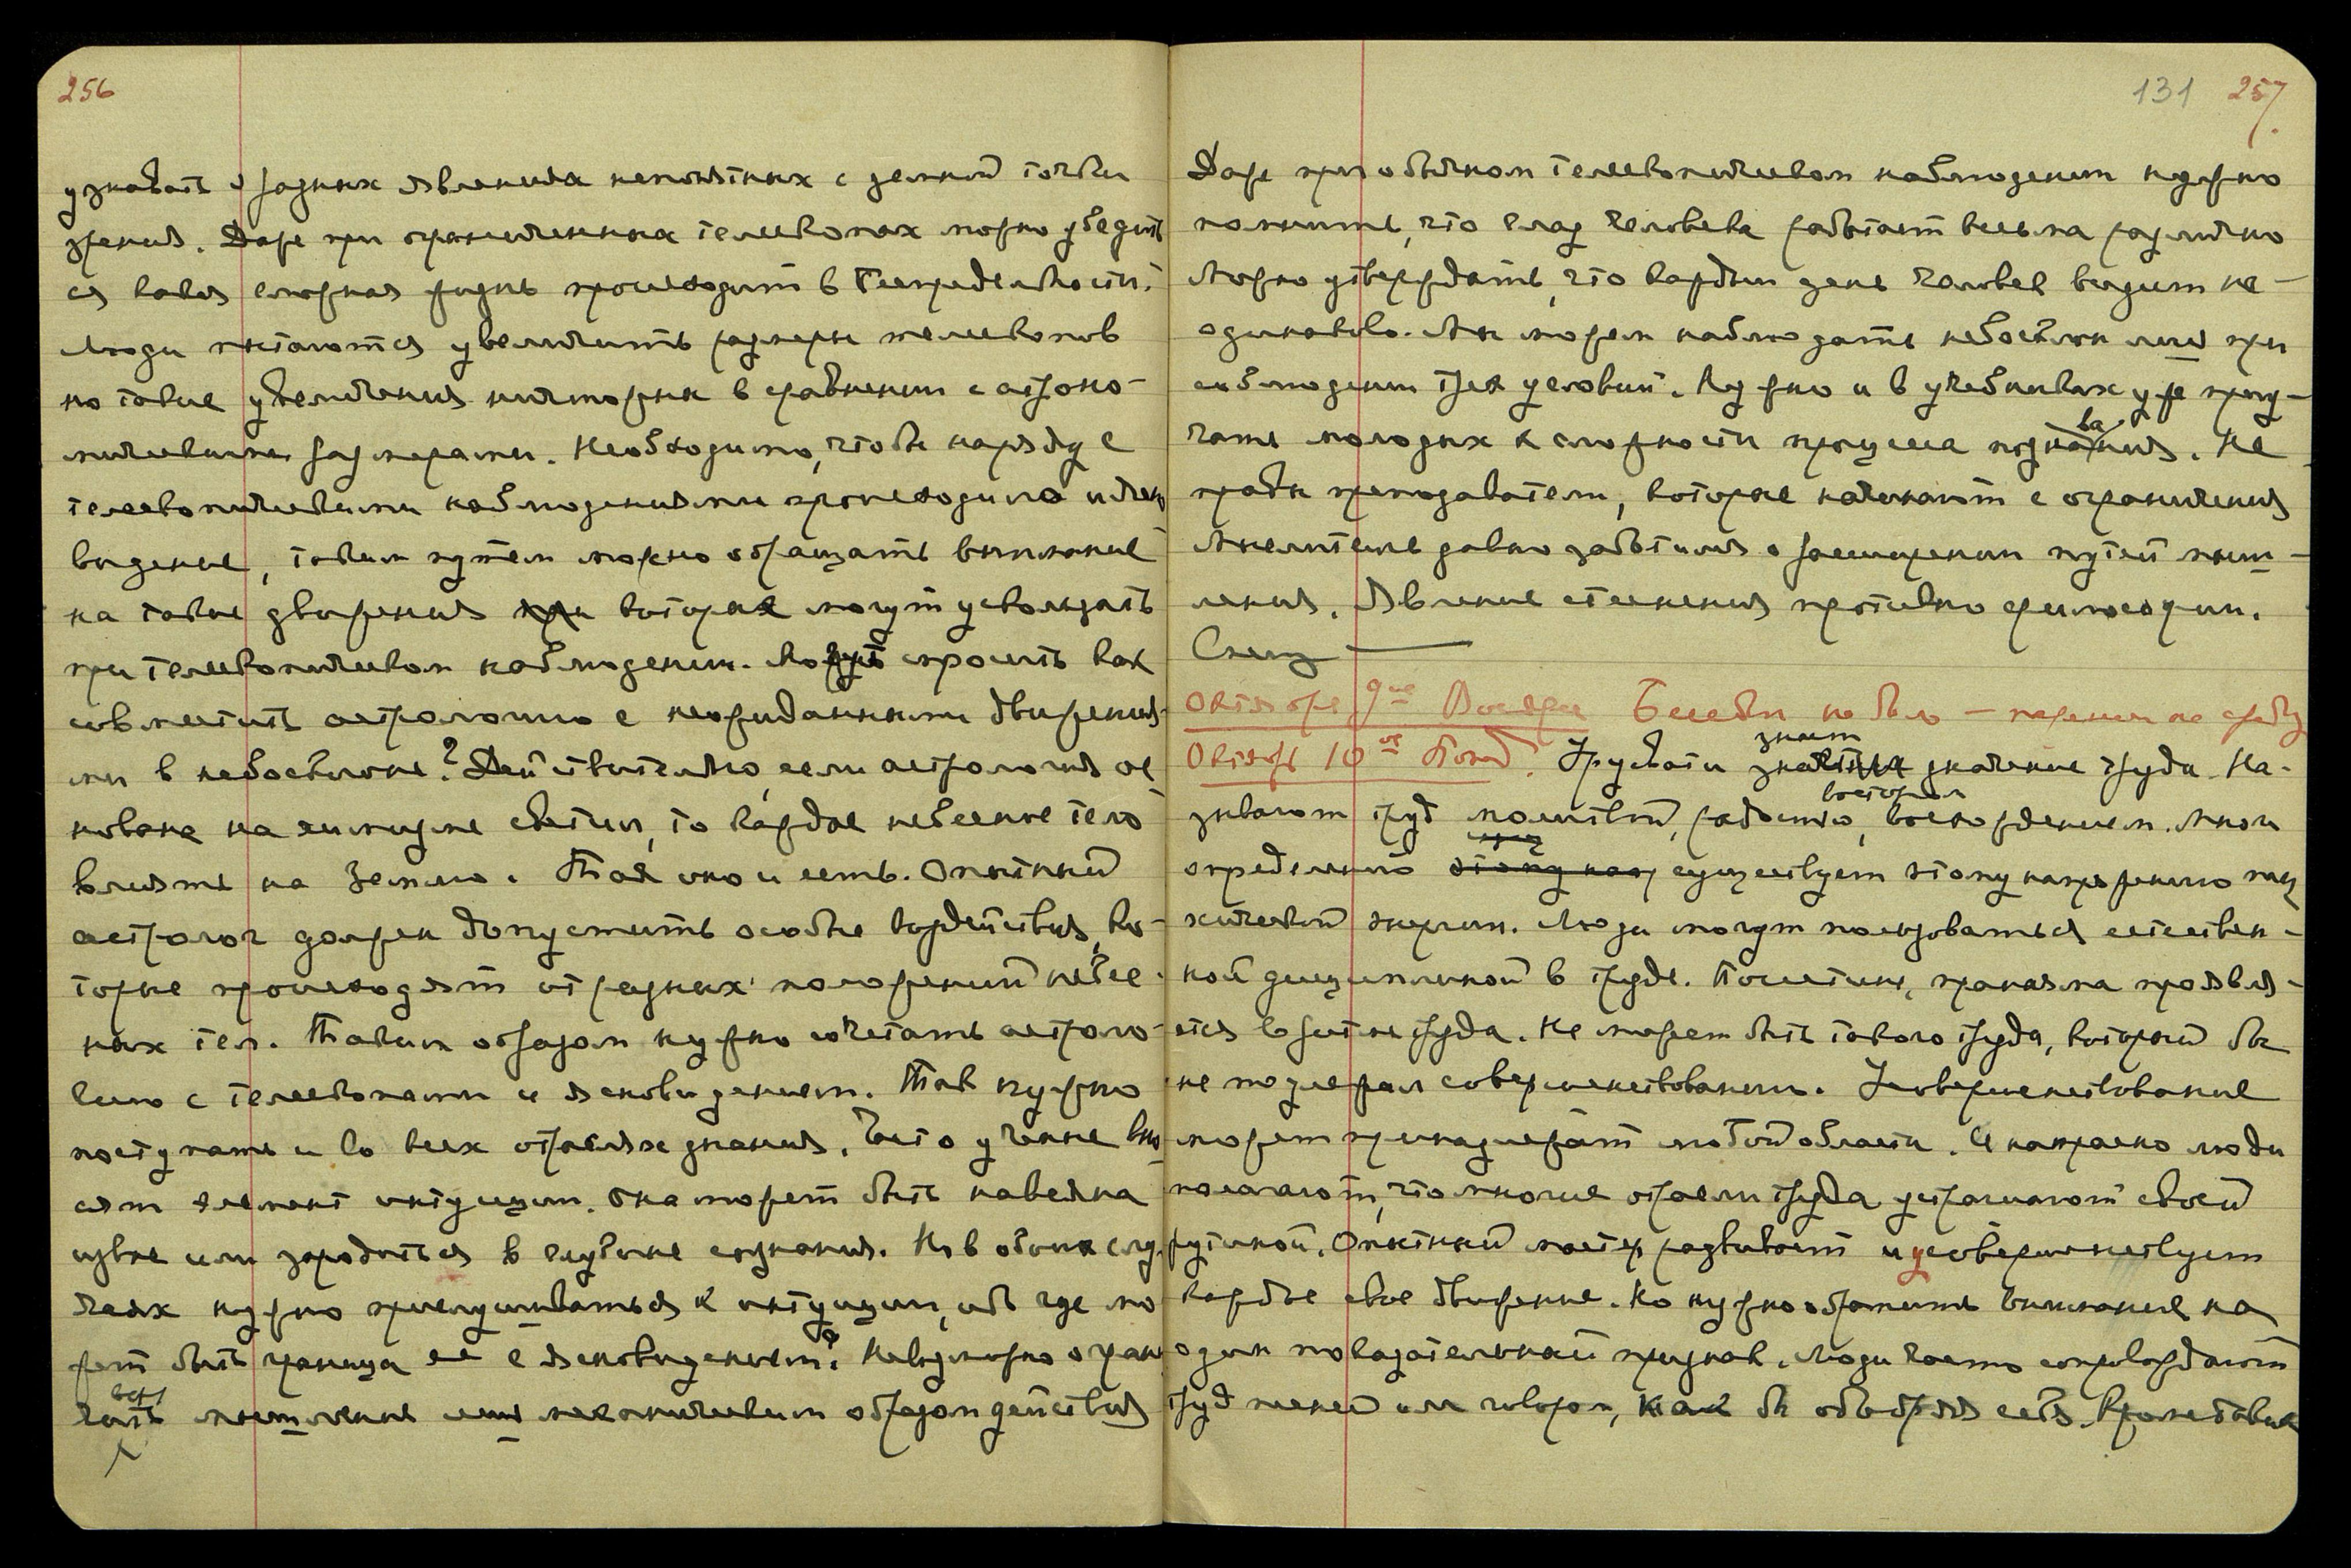 256
узнавать о разных явлениях непонятных с земной точки
зрения. Даже при ограниченных телескопах можно убедить
ся какая сложная жизнь происходит в Беспредельности.
Люди пытаются увеличить размеры телескопов
но такие увеличения ничтожны в сравнении с астроно-
мическими размерами. Необходимо, чтобы наряду с
телескопическими наблюдениями происходило и ясно
видение, таким путем можно обращать внимание
на такие движения которые могут ускользать
при телескопическом наблюдении. Могут спросить как
совместить астрологию с неожиданными движения-
ми в небосклоне? Действительно, если астрология ос
нована на химизме светил, то каждое небесное тело
влиять на Землю. Так оно и есть. Опытный
астролог должен допустить особые воздействия, ко-
торые происходят от разных положений небес-
ных тел. Таким образом нужно сочетать астроло-
гию с телескопами и ясновидением. Так нужно
поступать и во всех отраслях знания. Часто ученые вно
сят элемент интуиции. Она может быть навеяна
извне или зародиться в глубине сознания. Но в обоих слу
чаях нужно прислушиваться к интуиции, ибо где мо
жет быть граница её с ясновидением? Невозможно огран
чивать мышление лишь механическим образом действия
131 257.
Даже при обычном телескопическом наблюдении нужно
помнить, что глаз человека работает весьма различно
Можно утверждать, что каждый день человек видит не-
одинаково. Мы можем наблюдать небосклон лишь при
соблюдении трех условий. Нужно и в учебниках уже приу-
чать молодых к сложности процесса познавания. Не
правы преподаватели, которые начинают с ограничения
Мыслители давно заботились о расширении путей мыш-
ления. Явление стеснения противно философии.
Спешу
Октября 9ое Воскрес Беседы не было — перенесли на среду
Октябрь 10ое Понед. Урусвати знает значение труда. На-
зывают труд молитвой, радостью, восторгом, восхождением. Много
определений существует этому напряжению пси
хической энергии. Люди могут пользоваться естествен-
ной дисциплиной в труде. Поистине, пранаяма проявля-
ется в ритме труда. Не может быть такого труда, который бы
не подлежал совершенствованию. Усовершенствование
может принадлежать любой области. И напрасно люди
полагают, что многие отрасли труда устрашают своей
рутиной. Опытный мастер развивает и усовершенствует
каждое свое движение. Но нужно обратить внимание на
один показательный признак. Люди часто сопровождают
труд пеней или говором, как бы ободряя себя. Кроме таких